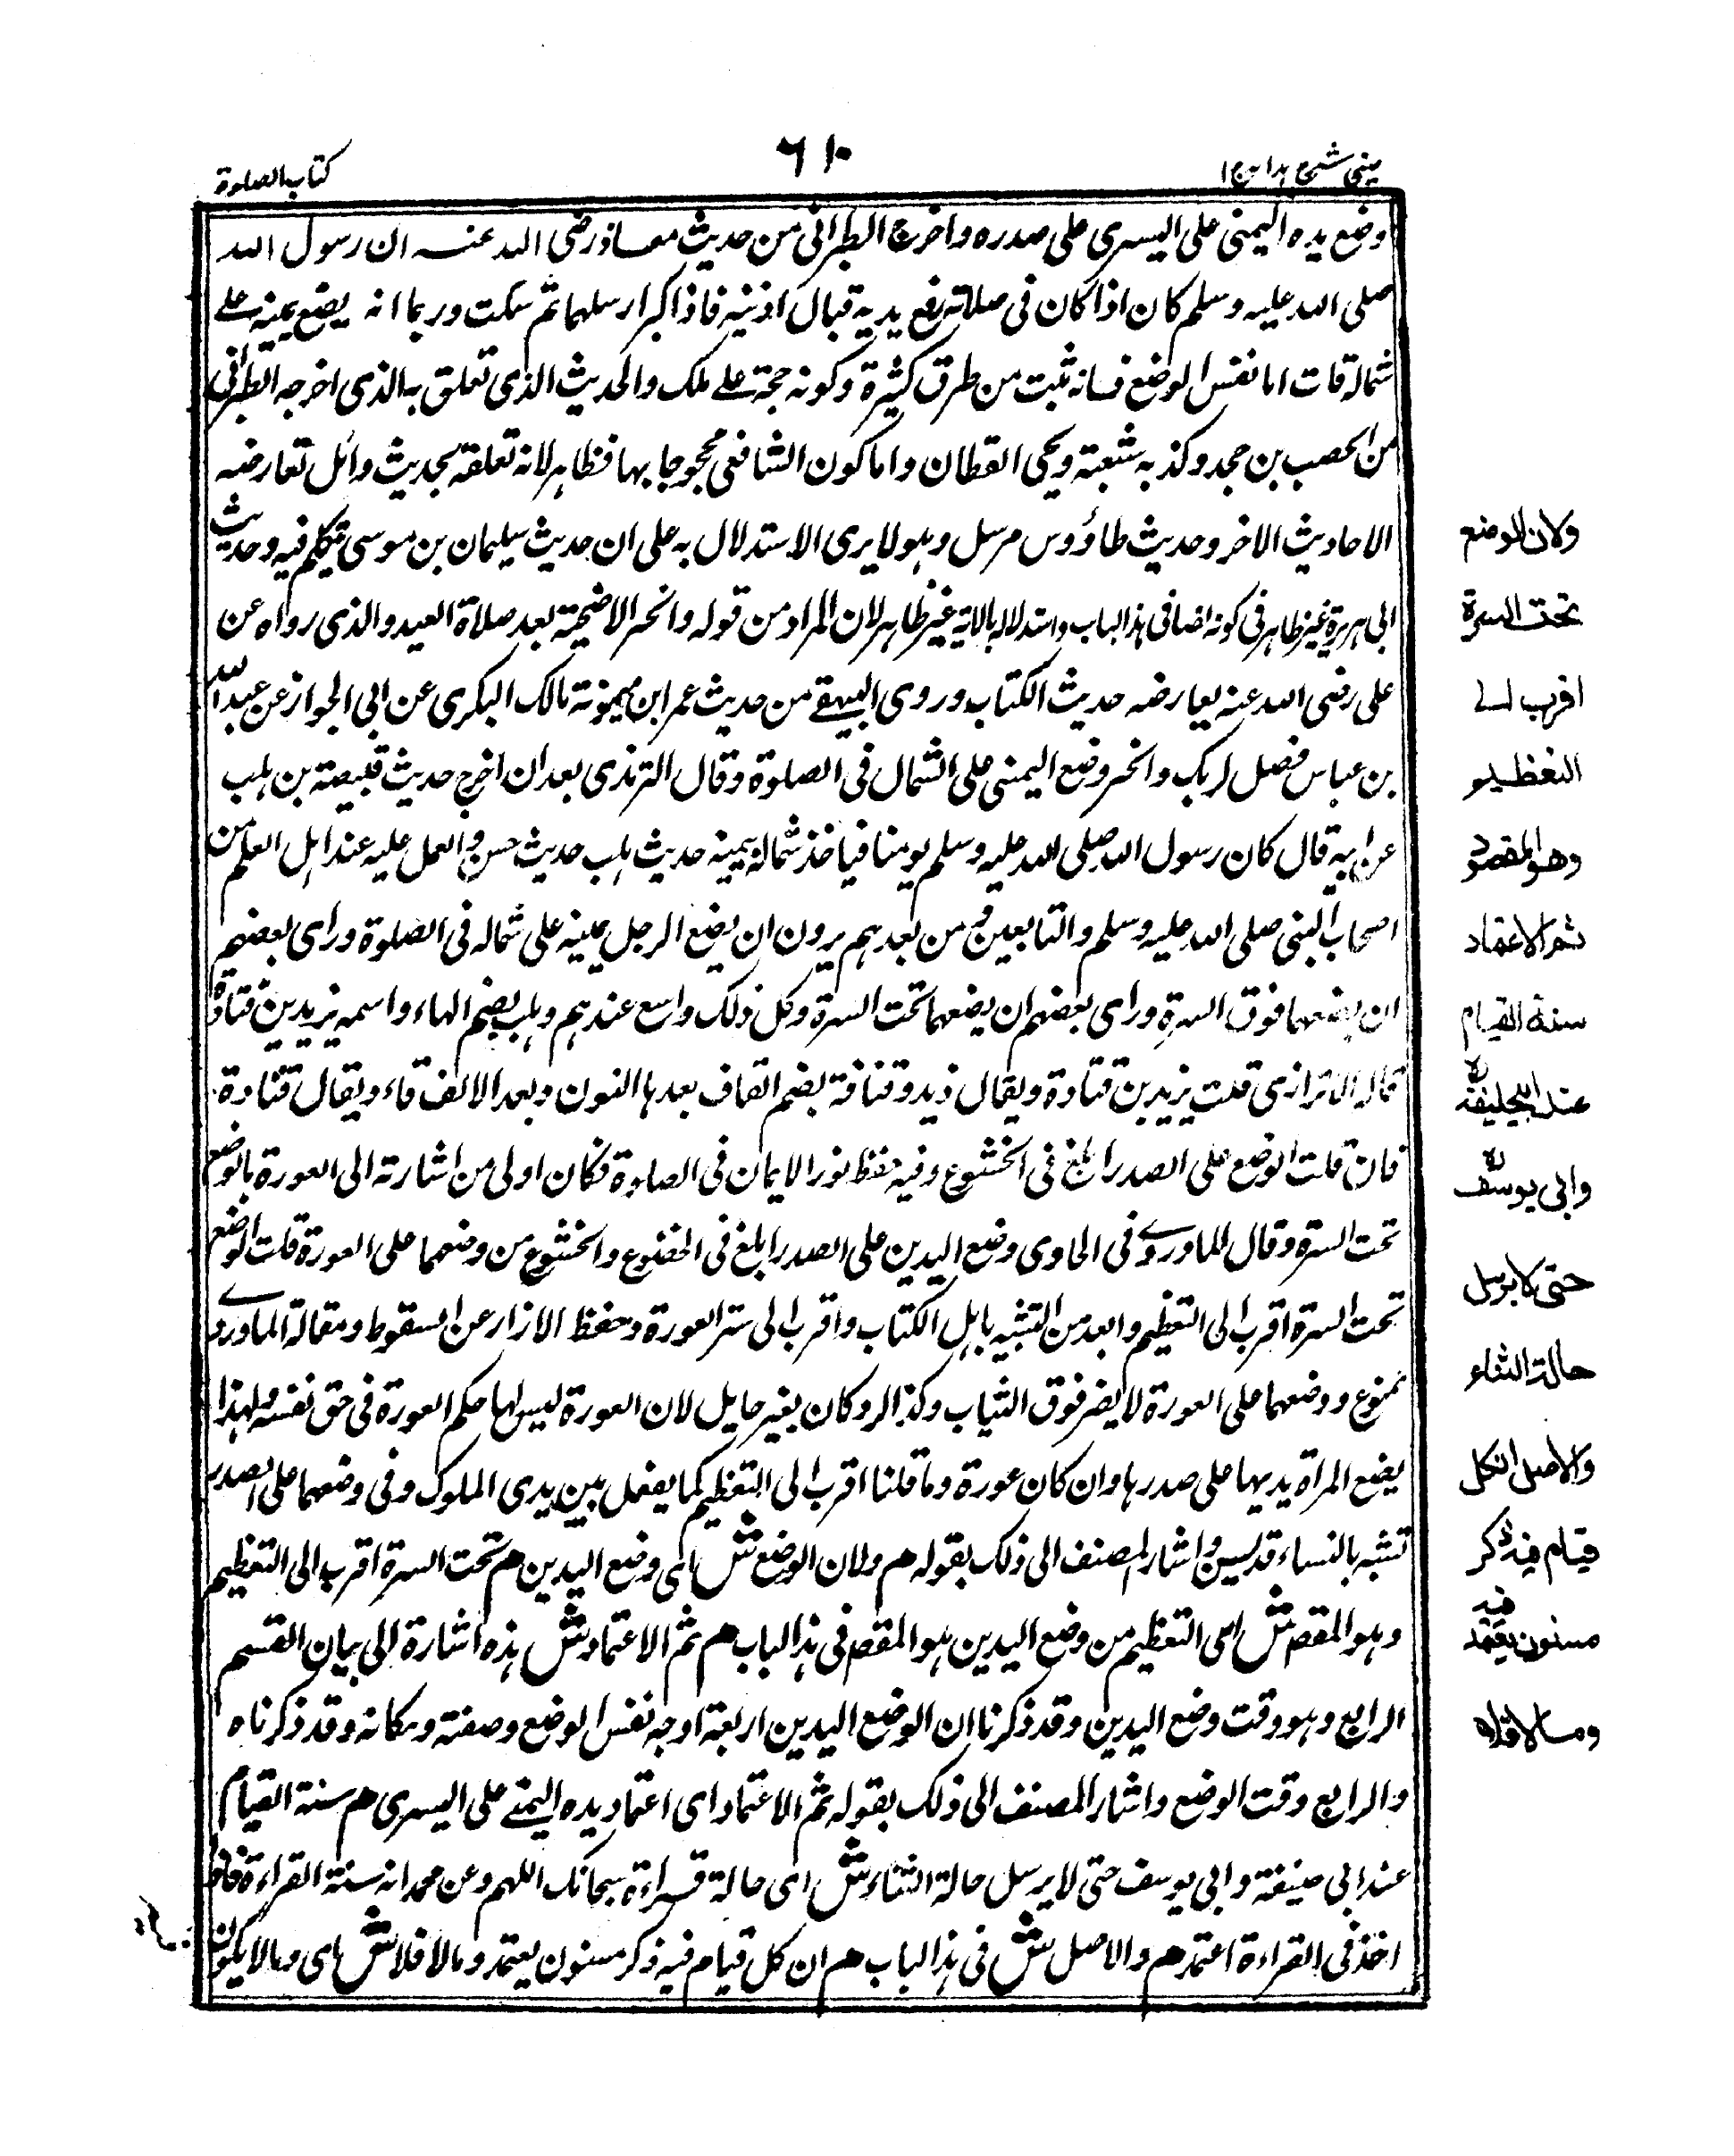 عینی شرح هدایه ج ۱
۶۱۰
کتاب الصلوة
وضع یده الیمنی علی الیسری علی صدره واخرج الطبرانی من حدیث معاذ رضی الله عنه ان رسول الله
صلی الله علیه وسلم کان اذا کان فی صلاته رفع یدیه قبال اذنیه فاذا کبر ارسلهما ثم سکت وربما انه یضع یمینه علے
شماله قلت اما نفس الوضع فانه ثبت من طرق کثیرة وکونه حجة علے ملک والحدیث الذی تعلق به الذی اخرجه الطبرانی
من الحصب بن حجد وکذبه شعبة ویحی القطان واما کون الشافعی محجوجا بها فظاهر لانه تعلقه بحدیث وائل تعارضه
الاحادیث الاخر وحدیث طاؤوس مرسل وهو لا یری الاستدلال به علی ان حدیث سلیمان بن موسی تکلم فیه وحدیث
ابی هریرة غیر ظاهر فی کونه ایضا فی هذا الباب واستدلاله بالایة غیر ظاهر لان المراد من قوله وانحر الاضحیة بعد صلاة العید والذی رواه عن
علی رضی الله عنه یعارضه حدیث الکتاب وروی البیهقے من حدیث عمر ابن میمونة مالک البکری عن ابی الجواز عن عبد الله
بن عباس فصل لربک وانحر وضع الیمنی علی الشمال فی الصلوة وقال الترمذی بعد ان اخرج حدیث قبیصة بن هلب
عن ابیه قال کان رسول الله صلی الله علیه وسلم یومنا فیاخذ شماله بیمینه حدیث هلب حدیث حسن والعمل علیه عند اهل العلم من
اصحاب النبی صلی الله علیه وسلم والتابعین ومن بعدهم یرون ان یضع الرجل یمینه علی شماله فی الصلوة ورای بعضهم
ان یضعهما فوق السرة ورای بعضهم ان یضعهما تحت السرة وکل ذلک واسع عندهم وهلب بضم الهاء واسمه یزید بن قتادة
قاله الاترازی قلت یزید بن قتادة ویقال زید وقنافة بضم القاف بعدها النون وبعد الالف فاء ویقال قتادة
فان قلت الوضع علی الصدر ابلغ فی الخشوع وفیه حفظ نور الایمان فی الصلوة فکان اولی من اشارته الی العورة بالوضع
تحت السرة وقال الماوردے فی الحاوی وضع الیدین علی الصدر ابلغ فی الخضوع والخشوع من وضعهما علی العورة قلت الوضع
تحت السرة اقرب الی التعظیم وابعد من التشبیه باهل الکتاب واقرب الی ستر العورة وحفظ الازار عن السقوط ومقالة الماوردے
ممنوع ووضعهما علی العورة لا یضر فوق الثیاب وکذا لو کان بغیر حایل لان العورة لیس لها حکم العورة فی حق نفسه ولهذا
یضع المراة یدیها علی صدرها وان کان عورة وما قلنا اقرب الی التعظیم کما یفعل بین یدی الملوک وفی وضعهما علی الصدر
تشبه بالنساء قد یسن واشار المصنف الی ذلک بقوله هم ولان الوضع ش ای وضع الیدین هم تحت السرة اقرب الی التعظیم
وهو المقصر ش ای التعظیم من وضع الیدین هو المقصر فی هذا الباب هم ثم الاعتماد ش هذه اشارة الی بیان القسم
الرابع وهو وقت وضع الیدین وقد ذکرنا ان الوضع الیدین اربعة اوجه نفس الوضع وصفته ومکانه وقد ذکرناه
والرابع وقت الوضع واشار المصنف الی ذلک بقوله ثم الاعتماد ای اعتماد یده الیمنے علی الیسری هم سنة القیام
عند ابی حنیفة وابی یوسف حتی لا یرسل حالة الثناء ش ای حالة قراءة سبحانک اللهم وعن محمد انه سنة القراءة فاذا
اخذ فی القراءة اعتمد هم والاصل ش فی هذا الباب هم ان کل قیام فیه ذکر مسنون یعتمد ومالا فلا ش ای ومالا یکون
ولان الوضع
تحت السرة
اقرب الے
التعظیم
وهو المقصود
ثم الاعتماد
سنة القیام
عند ابیحنیفة رہ
وابی یوسف رہ
حتی لا یرسل
حالة الثناء
والاصل ان کل
قیام فیه ذکر
مسنون یعتمد فیه
ومالا فلا